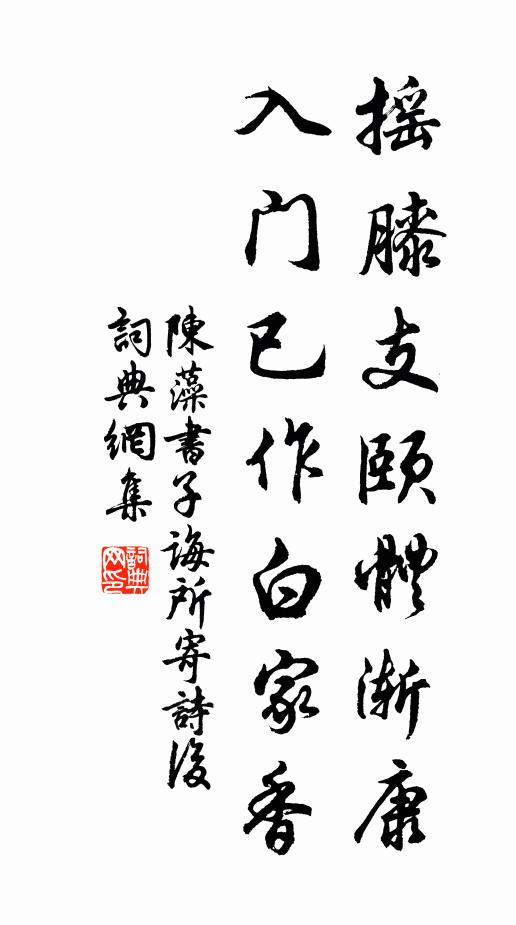 摇膝支頤體渐康
入门已作白家香
陳藻書子誨所寄詩後
詞典網集
詞典网印